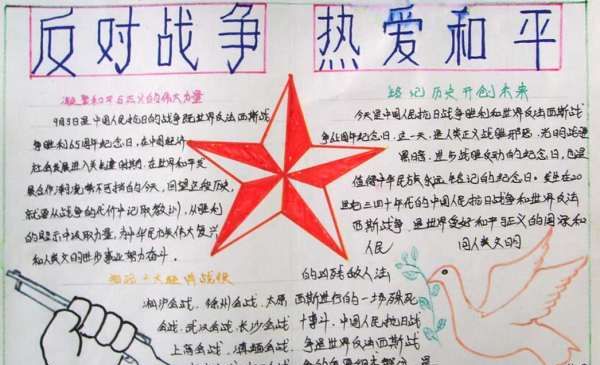 反对战争
热爱和平
凝聚和平与正义的伟大力量
9月3日是中国人民抗日的战争既世界反法西斯战
争胜利65周年纪念日，在中国经济
社会发展进入关键时期，在世界和平发
展合作潮流势不可挡的今天，回望这段历史，
就要从战争的代价中记取教训，从胜利
的启示中汲取力量，为中华民族伟大复兴
和人类文明进步事业努力奋斗。
铭记历史开创未来
今天是中国人民抗日战争胜利和世界反法西斯战
争65周年纪念日，这一天，是人类正义战胜邪恶，光明战胜
黑暗，进步战胜反动的纪念日，也是
值得中华民族永远铭记的纪念日。发生在20
世纪三四十年代的中国人民抗日战争和世界反法
西斯战争，是世界爱好和平与正义的国家和
人民
同人类文明
的凶残敌人法
西斯进行的一场殊死
十搏斗，中国人民抗日战
争是世界反法西斯战
大经典战役
淞沪会战、徐州会战、太原
会战、武汉会战、长沙会战
上高会战、滇缅会战